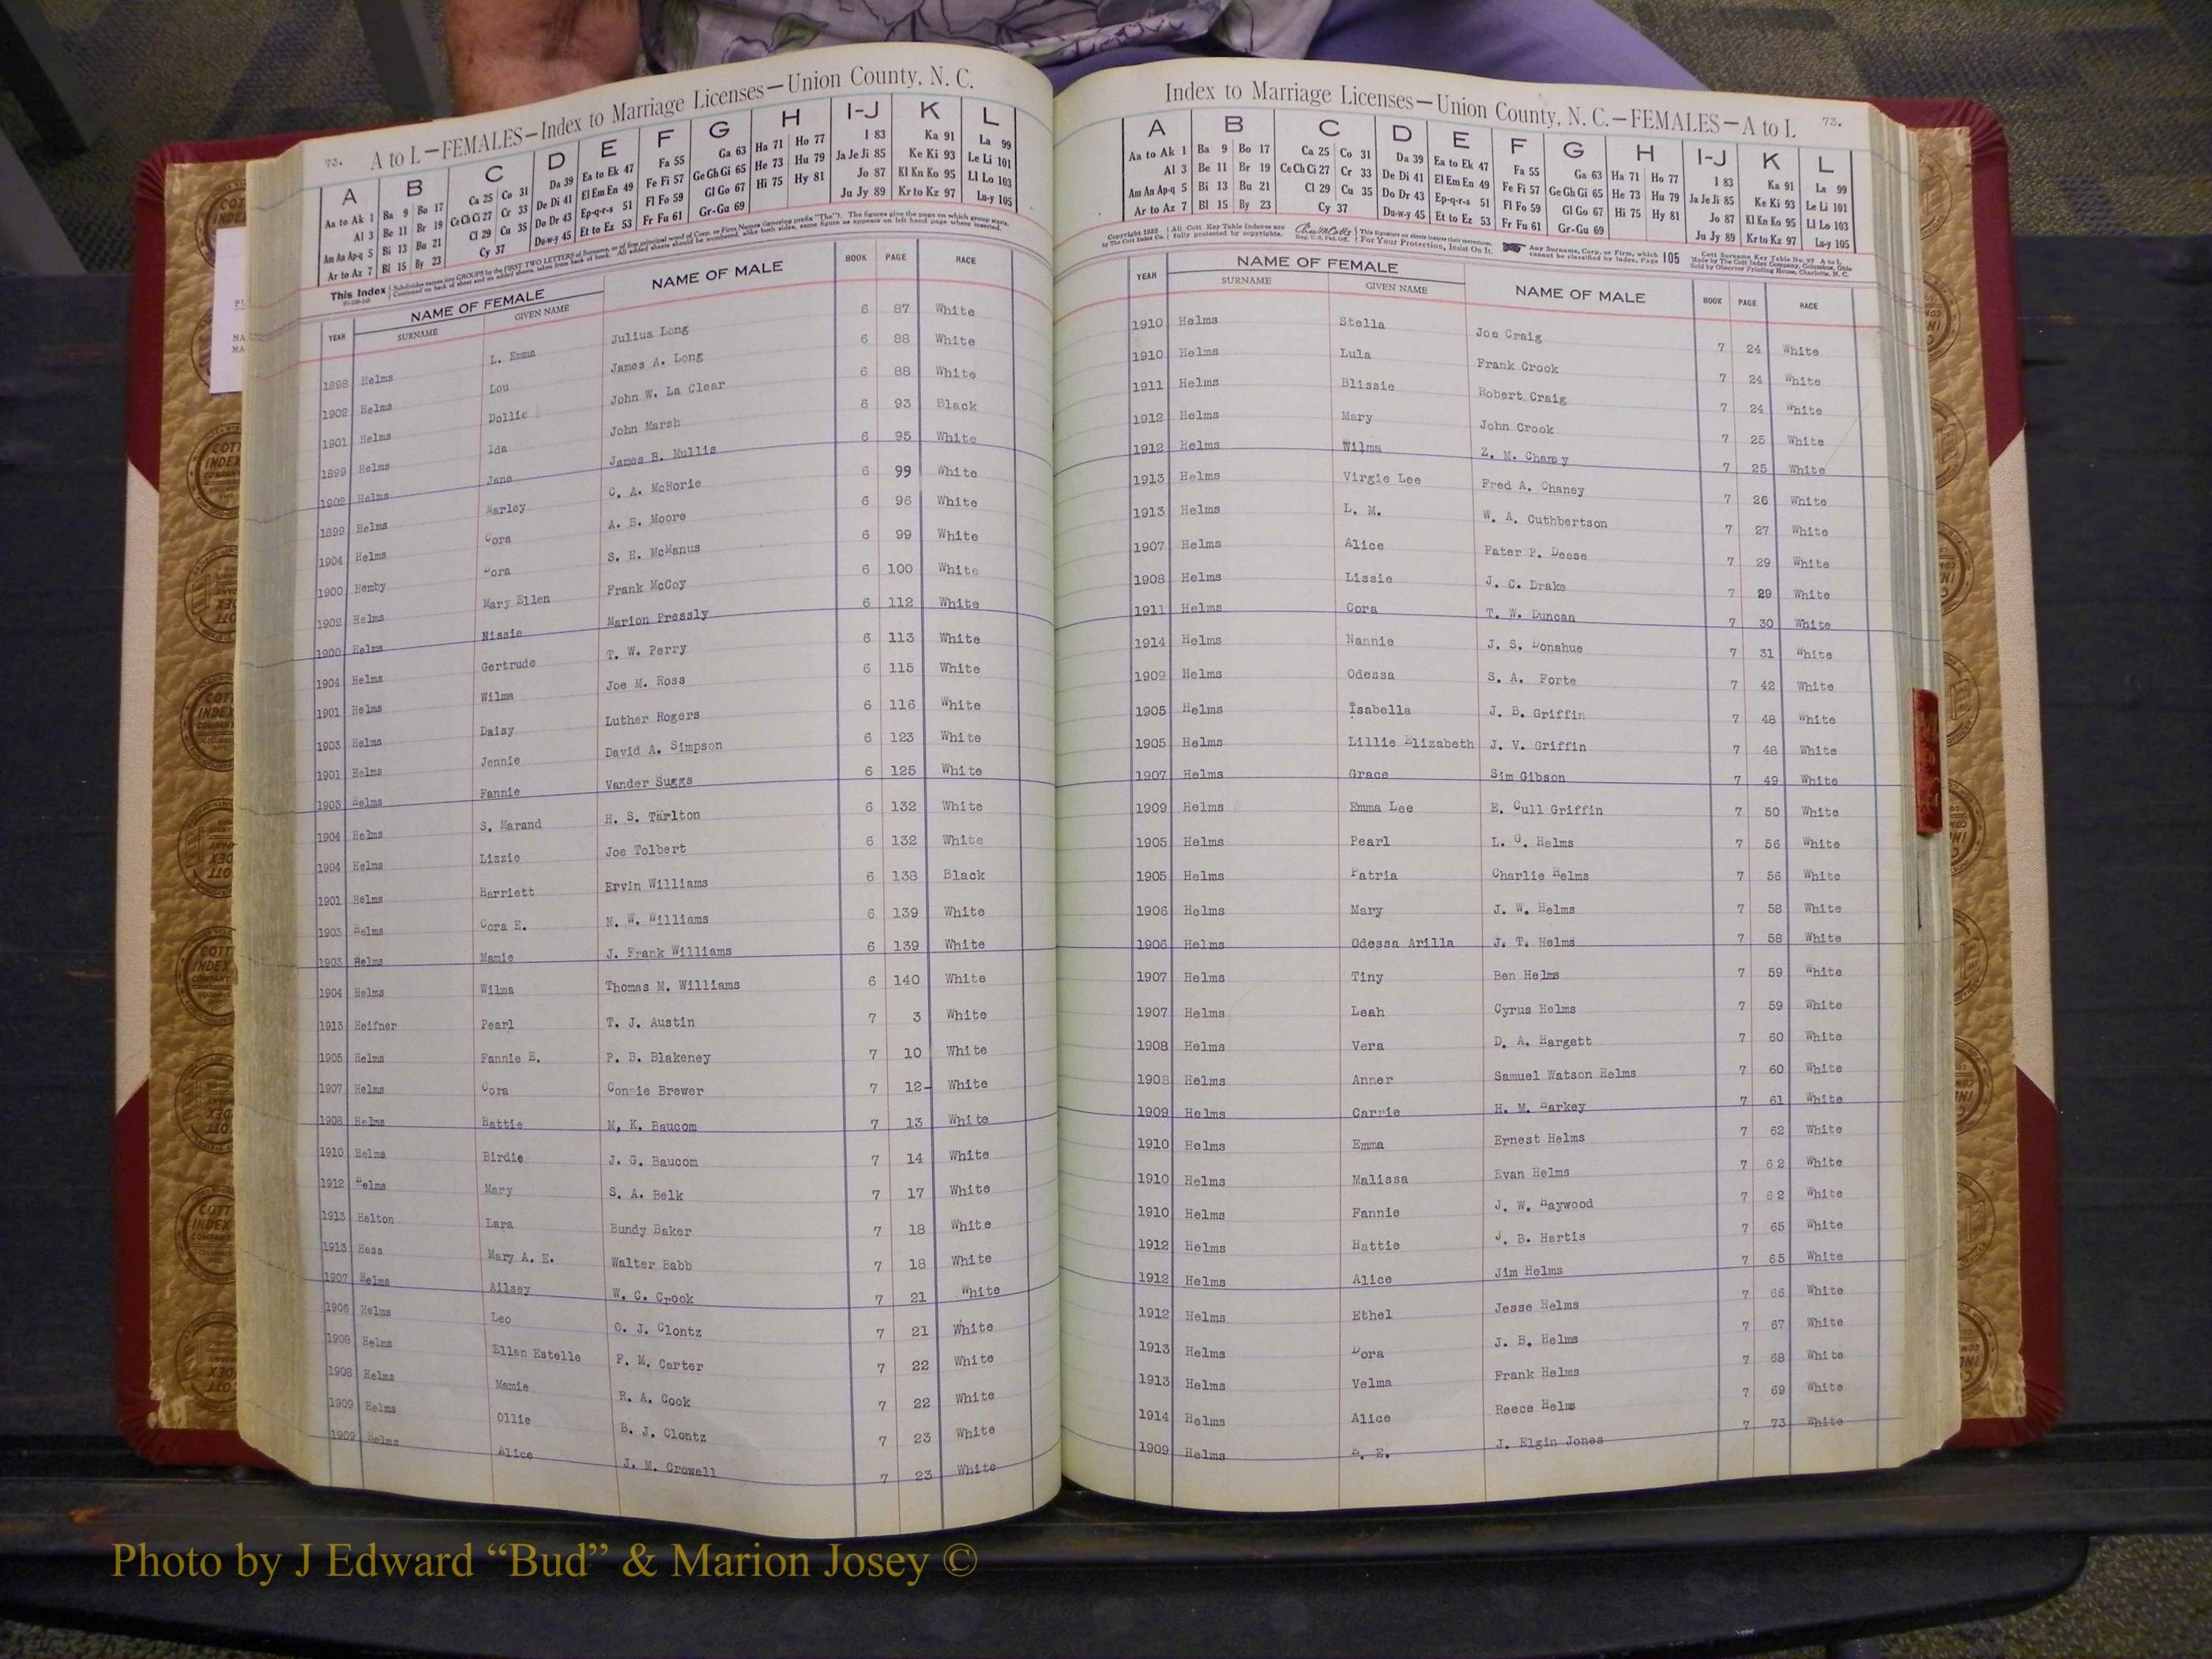 73. A to L—FEMALES—Index to Marriage Licenses—Union County, N. C.
A B C D E F G H I-J K L
Aa to Ak 1 Ba 9 Bo 17 Ca 25 Co 31 Da 39 Ea to Ek 47 Fa 55 Ga 63 Ha 71 Ho 77 I 83 Ka 91 La 99
Al 3 Be 11 Br 19 Ce Ch Ci 27 Cr 33 De Di 41 El Em En 49 Fe Fi 57 Ge Gh Gi 65 He 73 Hu 79 Ja Je Ji 85 Ke Ki 93 Le Li 101
Am An Ap-q 5 Bi 13 Bu 21 Cl 29 Cu 35 Do Dr 43 Ep-q-r-s 51 Fl Fo 59 Gl Go 67 Hi 75 Hy 81 Jo 87 Kl Kn Ko 95 Ll Lo 103
Ar to Az 7 Bl 15 By 23 Cy 37 Du-w-y 45 Et to Ez 53 Fr Fu 61 Gr-Gu 69 Ju Jy 89 Kr to Kz 97 Lu-y 105
This Index Subdivides names into GROUPS by the FIRST TWO LETTERS of Surname, or of first principal word of Corp. or Firm Names (ignoring prefix "The"). The figures give the page on which group starts.
Continued on back of sheet and on added sheets, taken from back of book. All added sheets should be numbered, alike both sides, same figure as appears on left hand page where inserted.
YEAR NAME OF FEMALE NAME OF MALE BOOK PAGE RACE
SURNAME GIVEN NAME
1898 Helms L. Emma Julius Long 6 87 White
1902 Helms Lou James A. Long 6 88 White
1901 Helms Dollie John W. La Clear 6 88 White
1899 Helms Ida John Marsh 6 93 Black
1902 Helms Jane James B. Mullis 6 95 White
1899 Helms Marloy C. A. McRorie 6 99 White
1904 Helms Cora A. B. Moore 6 96 White
1900 Hemby Dora S. H. McManus 6 99 White
1902 Helms Mary Ellen Frank McCoy 6 100 White
1900 Helms Nissie Marion Pressly 6 112 White
1904 Helms Gertrude T. W. Perry 6 113 White
1901 Helms Wilma Joe M. Ross 6 115 White
1903 Helms Daisy Luther Rogers 6 116 White
1901 Helms Jennie David A. Simpson 6 123 White
1903 Helms Fannie Vander Suggs 6 125 White
1904 Helms S. Marand H. S. Tarlton 6 132 White
1904 Helms Lizzie Joe Tolbert 6 132 White
1901 Helms Harriett Ervin Williams 6 138 Black
1903 Helms Cora E. N. W. Williams 6 139 White
1903 Helms Mamie J. Frank Williams 6 139 White
1904 Helms Wilma Thomas M. Williams 6 140 White
1913 Heifner Pearl T. J. Austin 7 3 White
1905 Helms Fannie E. P. B. Blakeney 7 10 White
1907 Helms Cora Connie Brewer 7 12- White
1908 Helms Hattie M. K. Baucom 7 13 White
1910 Helms Birdie J. G. Baucom 7 14 White
1912 Helms Mary S. A. Belk 7 17 White
1913 Helton Lara Bundy Baker 7 18 White
1913 Hess Mary A. E. Walter Babb 7 18 White
1907 Helms Ailsey W. C. Crook 7 21 White
1906 Helms Leo O. J. Clontz 7 21 White
1908 Helms Ellen Estelle F. M. Carter 7 22 White
1908 Helms Mamie R. A. Cook 7 22 White
1909 Helms Ollie B. J. Clontz 7 23 White
1909 Helms Alice J. M. Crowell 7 23 White
Index to Marriage Licenses—Union County, N. C.—FEMALES—A to L 73.
A B C D E F G H I-J K L
Aa to Ak 1 Ba 9 Bo 17 Ca 25 Co 31 Da 39 Ea to Ek 47 Fa 55 Ga 63 Ha 71 Ho 77 I 83 Ka 91 La 99
Al 3 Be 11 Br 19 Ce Ch Ci 27 Cr 33 De Di 41 El Em En 49 Fe Fi 57 Ge Gh Gi 65 He 73 Hu 79 Ja Je Ji 85 Ke Ki 93 Le Li 101
Am An Ap-q 5 Bi 13 Bu 21 Cl 29 Cu 35 Do Dr 43 Ep-q-r-s 51 Fl Fo 59 Gl Go 67 Hi 75 Hy 81 Jo 87 Kl Kn Ko 95 Ll Lo 103
Ar to Az 7 Bl 15 By 23 Cy 37 Du-w-y 45 Et to Ez 53 Fr Fu 61 Gr-Gu 69 Ju Jy 89 Kr to Kz 97 Lu-y 105
Copyright 1922 All Cott Key Table Indexes are This signature on sheets insures their correctness. Any Surname, Corp. or Firm, which Cott Surname Key Table No. 97 A to L
by The Cott Index Co. fully protected by copyrights. Reg. U. S. Pat. Off. For Your Protection, Insist On It. cannot be classified by Index, Page 105 Made by The Cott Index Company, Columbus, Ohio
Sold by Observer Printing House, Charlotte, N. C.
YEAR NAME OF FEMALE NAME OF MALE BOOK PAGE RACE
SURNAME GIVEN NAME
1910 Helms Stella Joe Craig 7 24 White
1910 Helms Lula Frank Crook 7 24 White
1911 Helms Blissie Robert Craig 7 24 White
1912 Helms Mary John Crook 7 25 White
1912 Helms Wilma Z. M. Chaney 7 25 White
1913 Helms Virgie Lee Fred A. Chaney 7 26 White
1913 Helms L. M. W. A. Cuthbertson 7 27 White
1907 Helms Alice Fater P. Deese 7 29 White
1908 Helms Lissie J. C. Drake 7 29 White
1911 Helms Cora T. W. Duncan 7 30 White
1914 Helms Nannie J. S. Donahue 7 31 White
1909 Helms Odessa S. A. Forte 7 42 White
1905 Helms Isabella J. B. Griffin 7 48 White
1905 Helms Lillie Elizabeth J. V. Griffin 7 48 White
1907 Helms Grace Sim Gibson 7 49 White
1909 Helms Emma Lee E. Cull Griffin 7 50 White
1905 Helms Pearl L. G. Helms 7 56 White
1905 Helms Patria Charlie Helms 7 56 White
1906 Helms Mary J. W. Helms 7 58 White
1906 Helms Odessa Arilla J. T. Helms 7 58 White
1907 Helms Tiny Ben Helms 7 59 White
1907 Helms Leah Cyrus Helms 7 59 White
1908 Helms Vera D. A. Hargett 7 60 White
1908 Helms Anner Samuel Watson Helms 7 60 White
1909 Helms Carrie H. M. Harkey 7 61 White
1910 Helms Emma Ernest Helms 7 62 White
1910 Helms Malissa Evan Helms 7 62 White
1910 Helms Fannie J. W. Haywood 7 62 White
1912 Helms Hattie J. B. Hartis 7 65 White
1912 Helms Alice Jim Helms 7 65 White
1912 Helms Ethel Jesse Helms 7 66 White
1913 Helms Dora J. B. Helms 7 67 White
1913 Helms Velma Frank Helms 7 68 White
1914 Helms Alice Reece Helms 7 69 White
1909 Helms E. J. Elgin Jones 7 73 White
Photo by J Edward “Bud” & Marion Josey ©